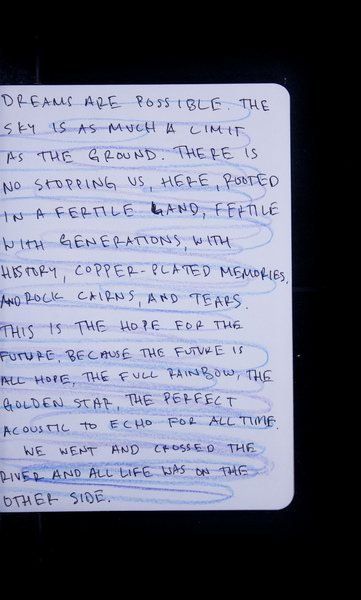 DREAMS ARE POSSIBLE. THE
SKY IS AS MUCH A LIMIT
AS THE GROUND. THERE IS
NO STOPPING US, HERE, ROOTED
IN A FERTILE LAND, FERTILE
WITH GENERATIONS, WITH
HISTORY, COPPER-PLATED MEMORIES,
AND ROCK CAIRNS, AND TEARS.
THIS IS THE HOPE FOR THE
FUTURE, BECAUSE THE FUTURE IS
ALL HOPE, THE FULL RAINBOW, THE
GOLDEN STAR, THE PERFECT
ACOUSTIC TO ECHO FOR ALL TIME.
WE WENT AND CROSSED THE
RIVER AND ALL LIFE WAS ON THE
OTHER SIDE.